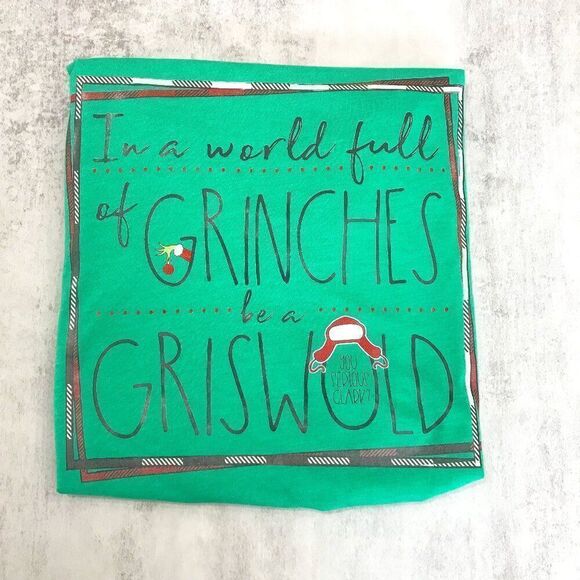 In a world full
of GRINCHES
be a
GRISWOLD
YOU
SERIOUS
CLARK?